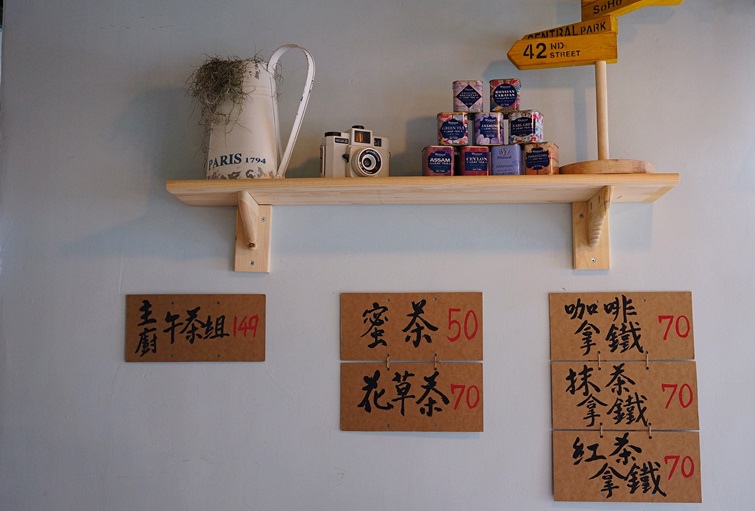 SOHO
CENTRAL PARK
42 ND
STREET
PARIS 1794
RUSSIAN
CARAVAN
GREEN TEA
JASMINE
EARL GREY
ASSAM
CEYLON
主廚午茶組149
蜜茶50
花草茶70
咖啡拿鐵70
抹茶拿鐵70
紅茶拿鐵70